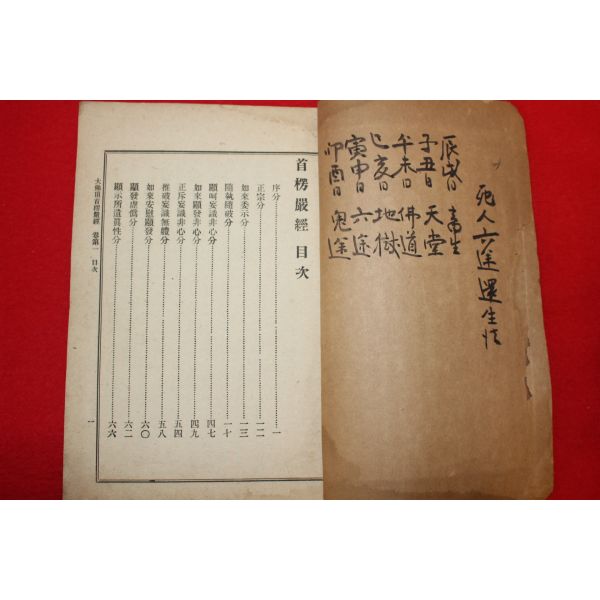 死人六途還生法
辰戌日 畜生
子丑日 天堂
午未日 佛道
巳亥日 地獄
寅申日 六途
卯酉日 鬼途
首楞嚴經 目次
序分……一
正宗分……一二
如來委示分……一三
隨執隨破分……一十
顯呵妄識非心分……四七
如來顯發非心分……四九
正斥妄識非心分……五四
推破妄識無體分……五八
如來安慰顯發分……六〇
顯發虛僞分……六二
顯示所遺眞性分……六六
大佛頂首楞嚴經 卷第一 目次 一